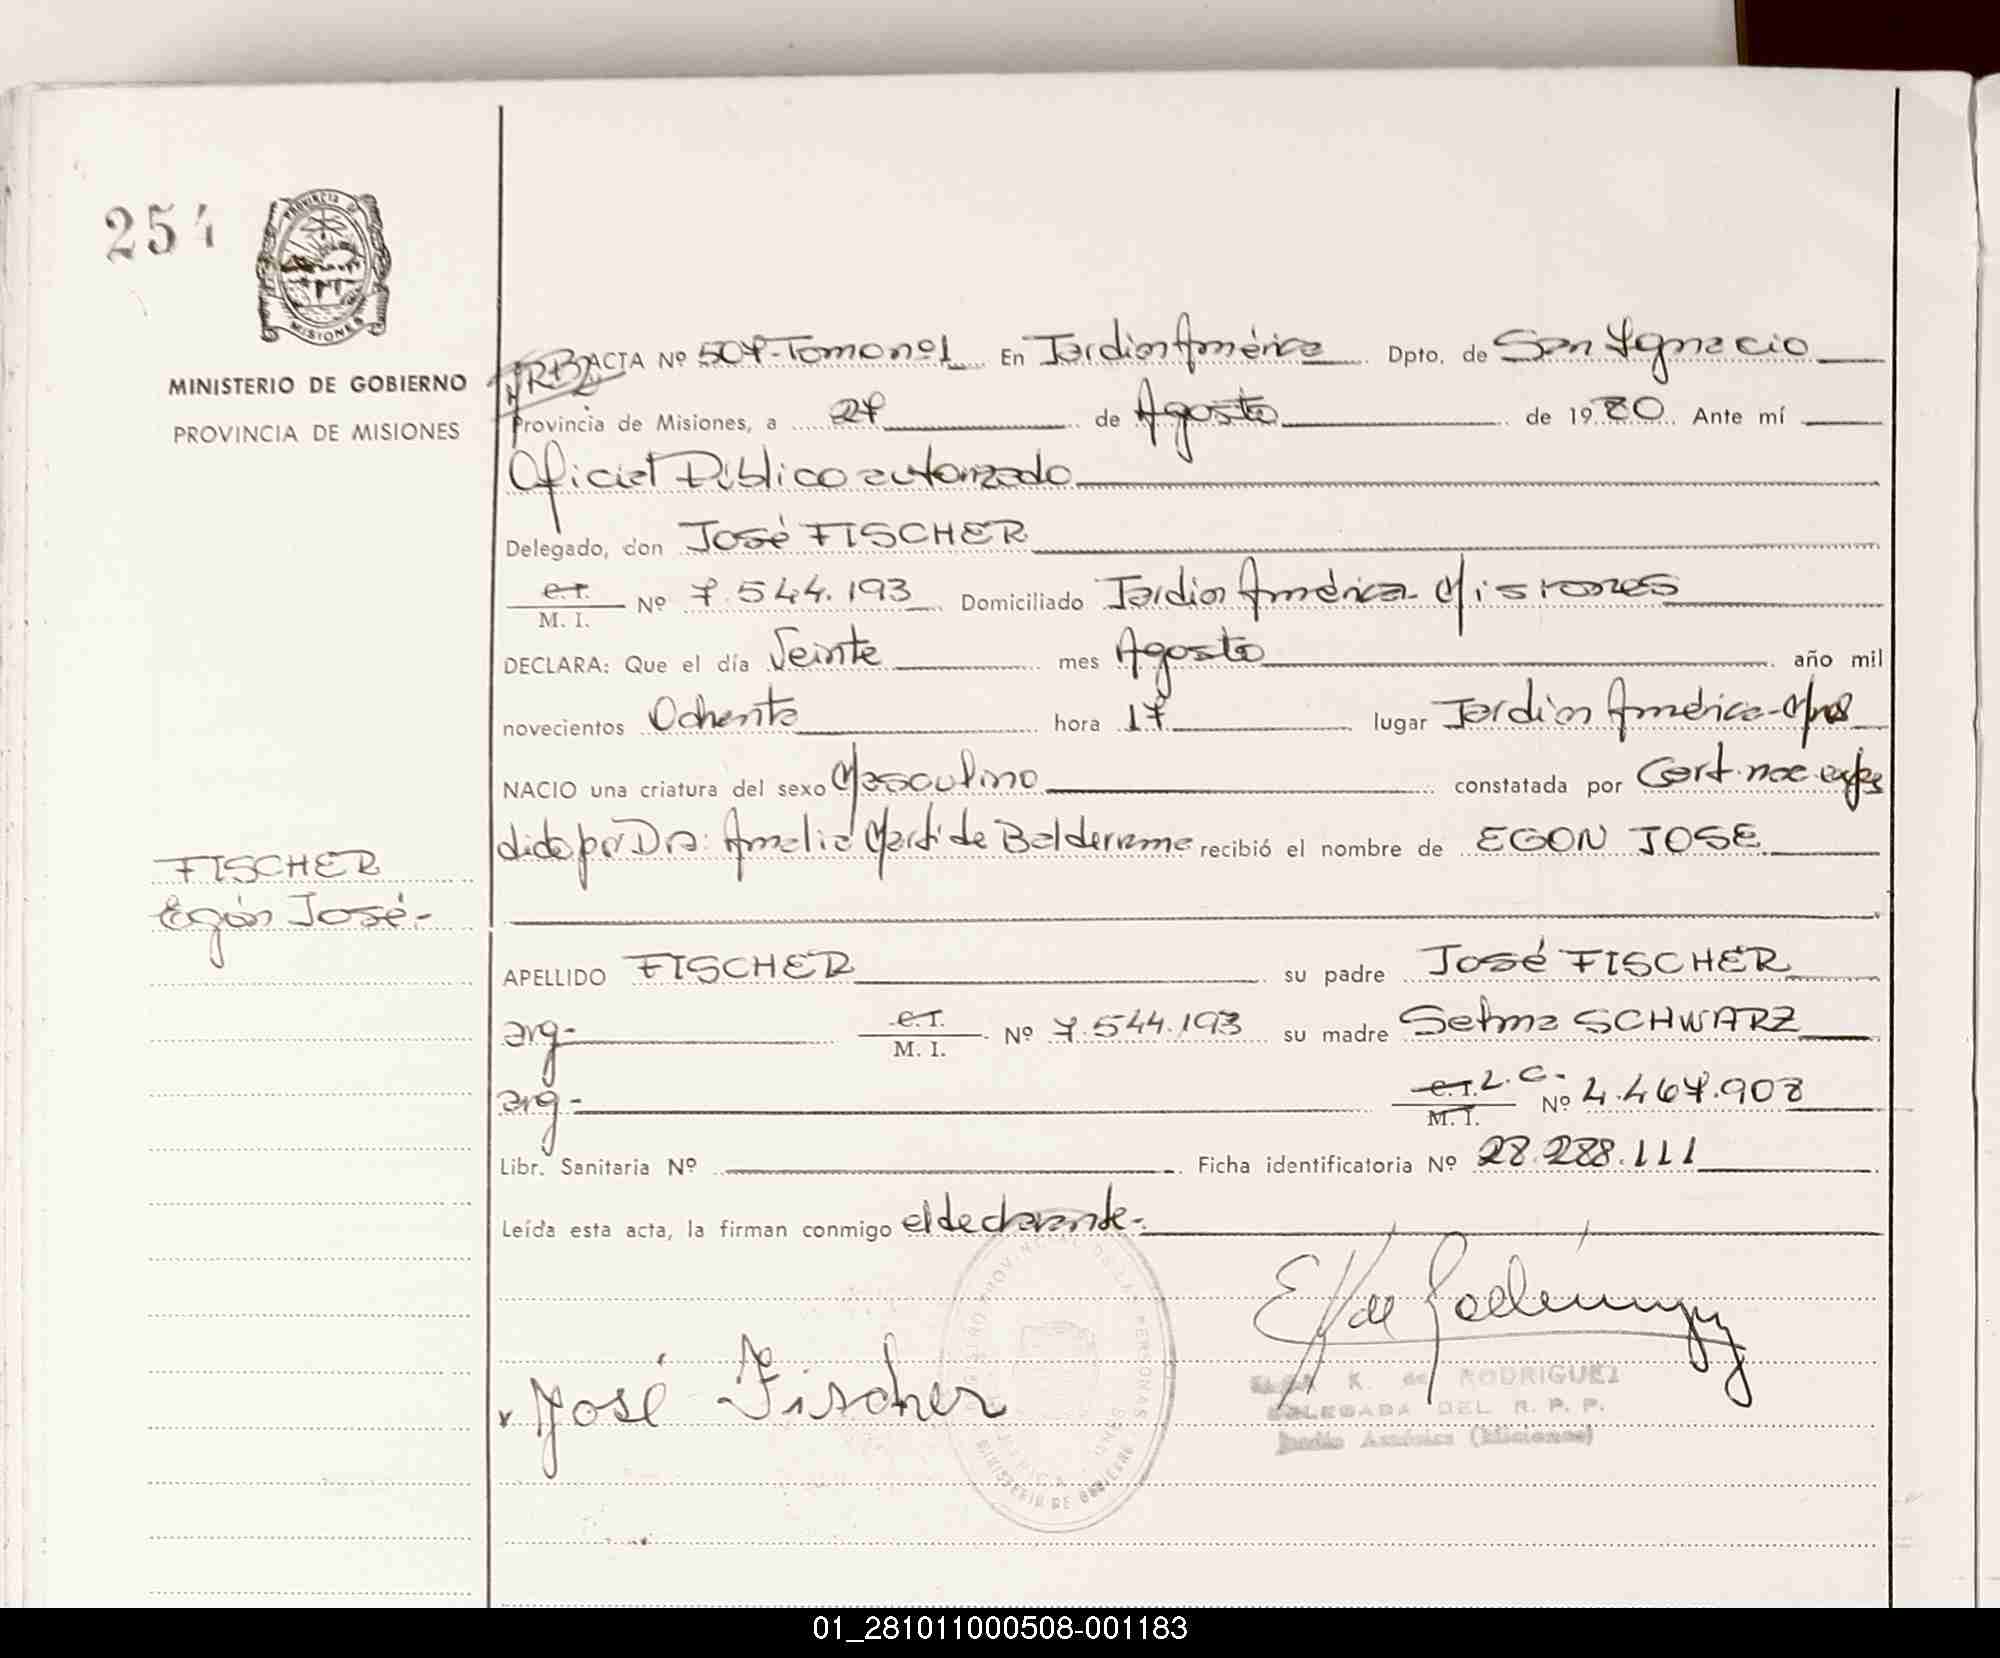 254
PROVINCIA DE
MISIONES
MINISTERIO DE GOBIERNO
PROVINCIA DE MISIONES
ACTA Nº 507-Tomo nº1 En Jardin América Dpto. de San Ignacio
Provincia de Misiones, a 27 de Agosto de 1980 Ante mí
Oficial Público autorizado
Delegado, don José FISCHER
C.I. M. I. Nº 7.544.193 Domiciliado Jardin América - Misiones
DECLARA: Que el día Veinte mes Agosto año mil
novecientos Ochenta hora 17 lugar Jardin América-Mnes
NACIO una criatura del sexo Masculino constatada por Cert. nac. expe
dido por Dra: Amelia Marti de Balderrama recibió el nombre de EGON JOSE
FISCHER
Egón José.-
APELLIDO FISCHER su padre José FISCHER
arg- C.I. M. I. Nº 7.544.193 su madre Selma SCHWARZ
arg- C.I. L.C. M. I. Nº 4.467.908
Libr. Sanitaria Nº Ficha identificatoria Nº 28.288.111
Leída esta acta, la firman conmigo el declarante.-
José Fischer
K. de RODRIGUEZ
DELEGADA DEL R. P. P.
Jardín América (Misiones)
PROVINCIAL DE LAS PERSONAS
MINISTERIO DE GOBIERNO
01_281011000508-001183